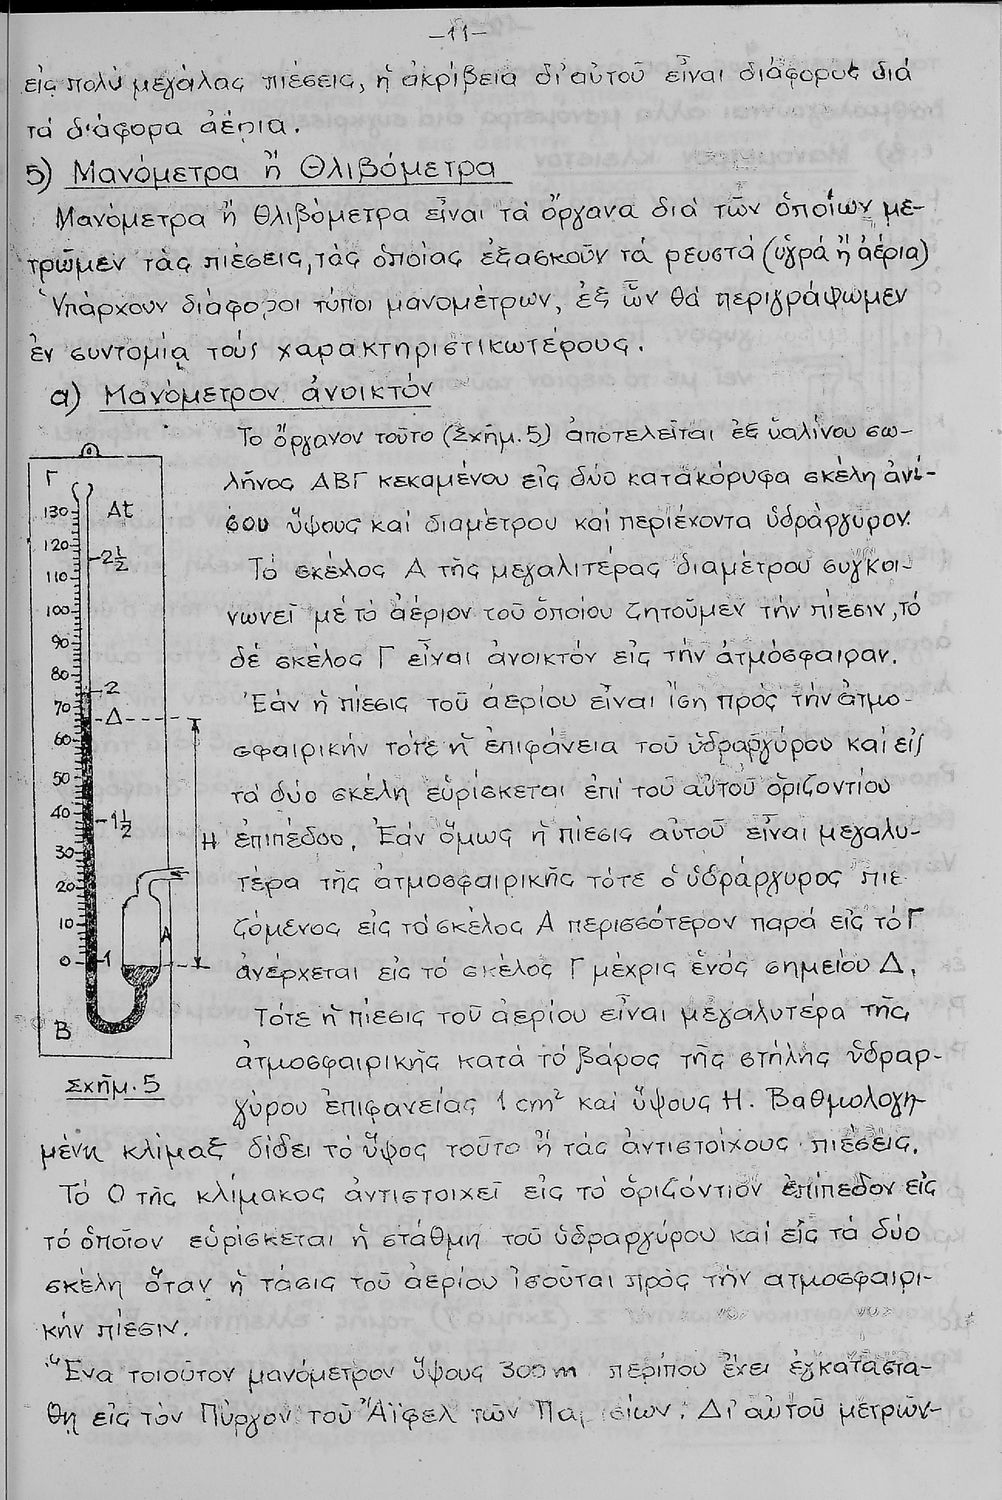 –11–
εἰς πολύ μεγάλας πιέσεις, ἡ ἀκρίβεια δι' αὐτοῦ εἶναι διάφορος διά
τά διάφορα ἀέρια.
5) Μανόμετρα ἤ Θλιβόμετρα
Μανόμετρα ἤ θλιβόμετρα εἶναι τά ὄργανα διά τῶν ὁποίων με-
τρῶμεν τὰς πιέσεις, τὰς ὁποίας ἐξασκοῦν τά ρευστά (ὑγρά ἤ ἀέρια)
Ὑπάρχουν διάφοροι τύποι μανομέτρων, ἐξ ὧν θά περιγράψωμεν
ἐν συντομίᾳ τούς χαρακτηριστικωτέρους.
α) Μανόμετρον ἀνοικτόν
Το ὄργανον τοῦτο (Σχῆμ. 5) ἀποτελεῖται ἐξ ὑαλίνου σω-
λῆνος ΑΒΓ κεκαμένου εἰς δύο κατακόρυφα σκέλη ἀνί-
σου ὕψους καί διαμέτρου καί περιέχοντα ὑδράργυρον.
Τό σκέλος Α τῆς μεγαλιτέρας διαμέτρου συγκοι-
νωνεῖ μέ τό ἀέριον τοῦ ὁποίου ζητοῦμεν τήν πίεσιν, τό
δέ σκέλος Γ εἶναι ἀνοικτόν εἰς τήν ἀτμόσφαιραν.
Ἐάν ἡ πίεσις τοῦ ἀερίου εἶναι ἴση πρός τήν ἀτμο-
σφαιρικήν τότε ἡ ἐπιφάνεια τοῦ ὑδραργύρου καί εἰς
τά δύο σκέλη εὑρίσκεται ἐπί τοῦ αὐτοῦ ὁριζοντίου
ἐπιπέδου. Ἐάν ὅμως ἡ πίεσις αὐτοῦ εἶναι μεγαλυ-
τέρα τῆς ἀτμοσφαιρικῆς τότε ὁ ὑδράργυρος πιε
ζόμενος εἰς τό σκέλος Α περισσότερον παρά εἰς τό Γ
ἀνέρχεται εἰς τό σκέλος Γ μέχρις ἑνός σημείου Δ.
Τότε ἡ πίεσις τοῦ ἀερίου εἶναι μεγαλυτέρα τῆς
ἀτμοσφαιρικῆς κατά τό βάρος τῆς στήλης ὑδραρ-
γύρου ἐπιφανείας 1 cm² καί ὕψους Η. Βαθμολογη-
μένη κλίμαξ δίδει τό ὕψος τοῦτο ἤ τάς ἀντιστοίχους πιέσεις.
Τό 0 τῆς κλίμακος ἀντιστοιχεῖ εἰς τό ὁριζόντιον ἐπίπεδον εἰς
τό ὁποῖον εὑρίσκεται ἡ στάθμη τοῦ ὑδραργύρου καί εἰς τά δύο
σκέλη ὅταν ἡ τάσις τοῦ ἀερίου ἰσοῦται πρός τήν ατμοσφαιρι-
κήν πίεσιν.
Ἕνα τοιοῦτον μανόμετρον ὕψους 300 m περίπου ἔχει ἐγκαταστα-
θῆ εἰς τόν Πύργον τοῦ Ἄϊφελ τῶν Παρισίων. Δι' αὐτοῦ μετρῶν-
Γ
At
130
120
110
100
90
80
70
60
50
40
30
20
10
0
2½
2
Δ
1½
1
Η
Α
Β
Σχῆμ. 5